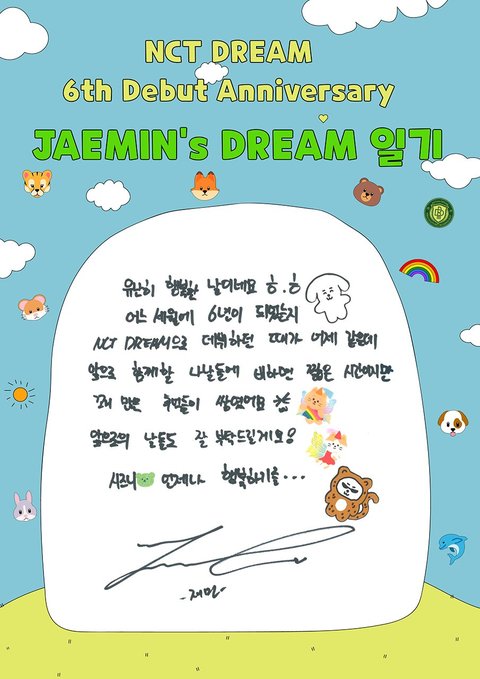 NCT DREAM
6th Debut Anniversary
JAEMIN's DREAM 일기
유난히 행복한 날이네요 ㅎ.ㅎ
어느 세월에 6년이 되었는지
NCT DREAM으로 데뷔하던 때가 어제 같은데
앞으로 함께할 나날들에 비하면 짧은 시간이지만
꽤 많은 추억들이 쌓였어요
앞으로의 날들도 잘 부탁드릴게요
시즈니 언제나 행복하기를...
-재민-